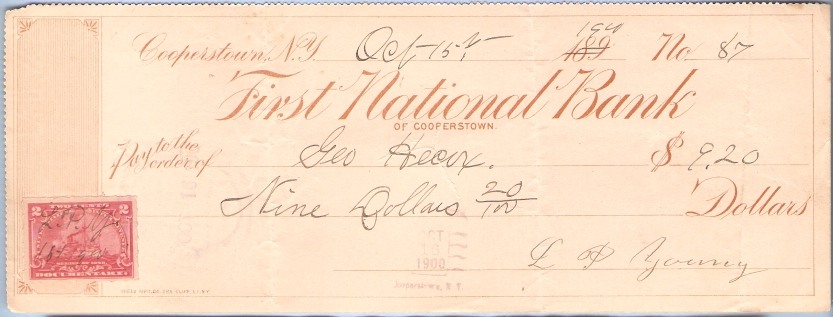 Cooperstown, N.Y. Oct 15th, 189 190 No. 87
First National Bank
OF COOPERSTOWN.
Pay to the order of Geo Hecox. $ 9.20
Nine Dollars 20/100 Dollars
L P Young
2 TWO CENTS 2
DOCUMENTARY
OCT
1900
Cooperstown, N.Y.